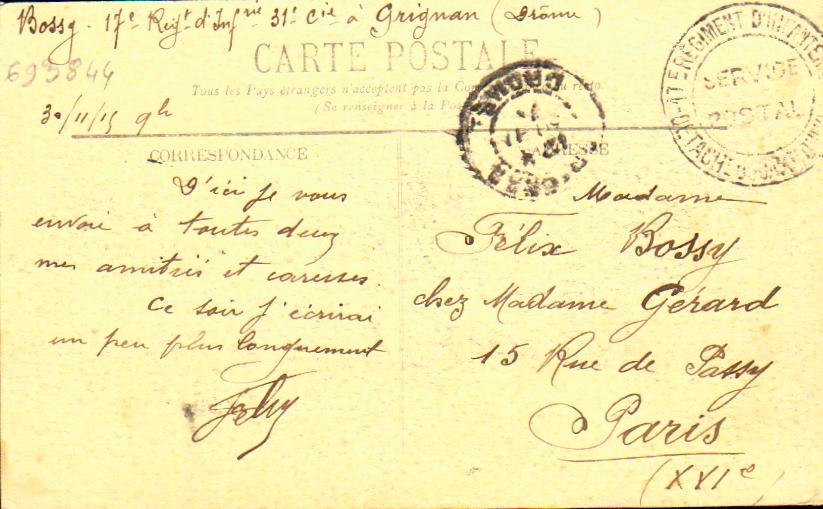 Bossy. 17e Regt d'Infrie 31e Cie à Grignan (Drôme)
CARTE POSTALE
695844
Tous les Pays étrangers n'acceptent pas la au recto
(Se renseigner à la
30/11/15 9h
CORRESPONDANCE
D'ici je vous
envoie à toutes deux
mes amitiés et caresses.
Ce soir j'écrirai
un peu plus longuement
SERVICE
POSTAL
RÉGIMENT D'INFANTERIE
Madame
Félix Bossy
chez Madame Gérard
15 Rue de Passy
Paris
(XVIe)